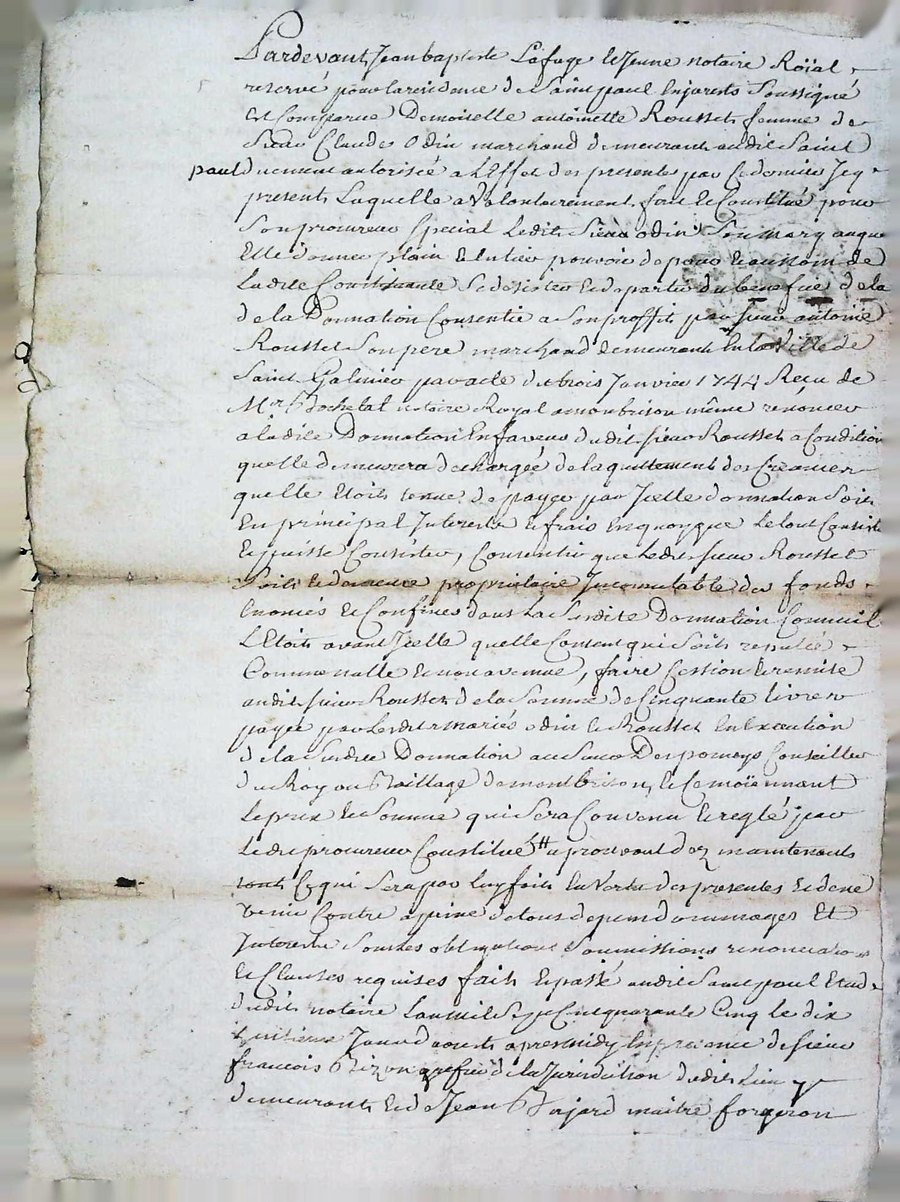 Pardevant Jean baptiste Lafuge le Jeune notaire Roïal
reservé pour la residence de Saint paul En jarests Soussigné
Est Comparue Demoiselle antoinette Rousset femme de
Sieur Claude Odin marchand demeurant audit Saint
paul duement autorisée a L'Effet des presentes par Ce dernier Icy
present, Laquelle a Volontairement fait & Constitué pour
Son procureur Special Ledit Sieur odin Son mary auquel
Elle donne plain & Entier pouvoir de pour & au nom de
Ladite Constituante Se desister & departir du benefice de la
de la Donnation Consentie a Son proffit par Sieur antoine
Rousset Son pere marchand demeurant En la Ville de
Saint Galmier par acte du trois Janvier 1744 Reçu de
Mr notaire Royal a monbrison même renoncer
a ladite Donnation En faveur dudit Sieur Rousset a Condition
quelle demeurera dechargée de laquittement des Creanciers
quelle Etoit tenue de payer par Icelle donnation Soit
En principal Interests & frais En quoy que Le tout Consiste
& puisse Consister, Consentir que Ledit Sieur Rousset
Soit & demeure propriétaire Incommutable des fonds
Enoncés & Confinés dans La Susdite Donnation Comme il
L'Etoit avant Icelle quelle Consent qui Soit reputée
Comme nulle & non avenue, faire Cession & remise
audit Sieur Rousset de la Somme de Cinquante livres
payée par Lesdits mariés odin & Rousset En Execution
de la Susdite Donnation au Sieur Desperneys Conseiller
du Roy au Bailliage de montbrison, & Ce moïennant
Le prix & Somme qui Sera Convenu & reglé par
Ledit procureur Constitué aprouvant dez maintenant
tout Ce qui Sera par Luy fait En Vertu des presentes & de ne
Venir Contre a peine de tous depens dommages Et
Interests Sous les obligations Soumissions renonciations
& Clauses requises fait & passé audit Saint paul Etude
dudit notaire Lan mil Sept Cent quarante Cinq le dix
huitieme Janvier avant apres midy En presence de Sieur
francois greffier de la Jurisdiction dudit Lieu y
demeurant & de Jean Bajard maitre forgeron